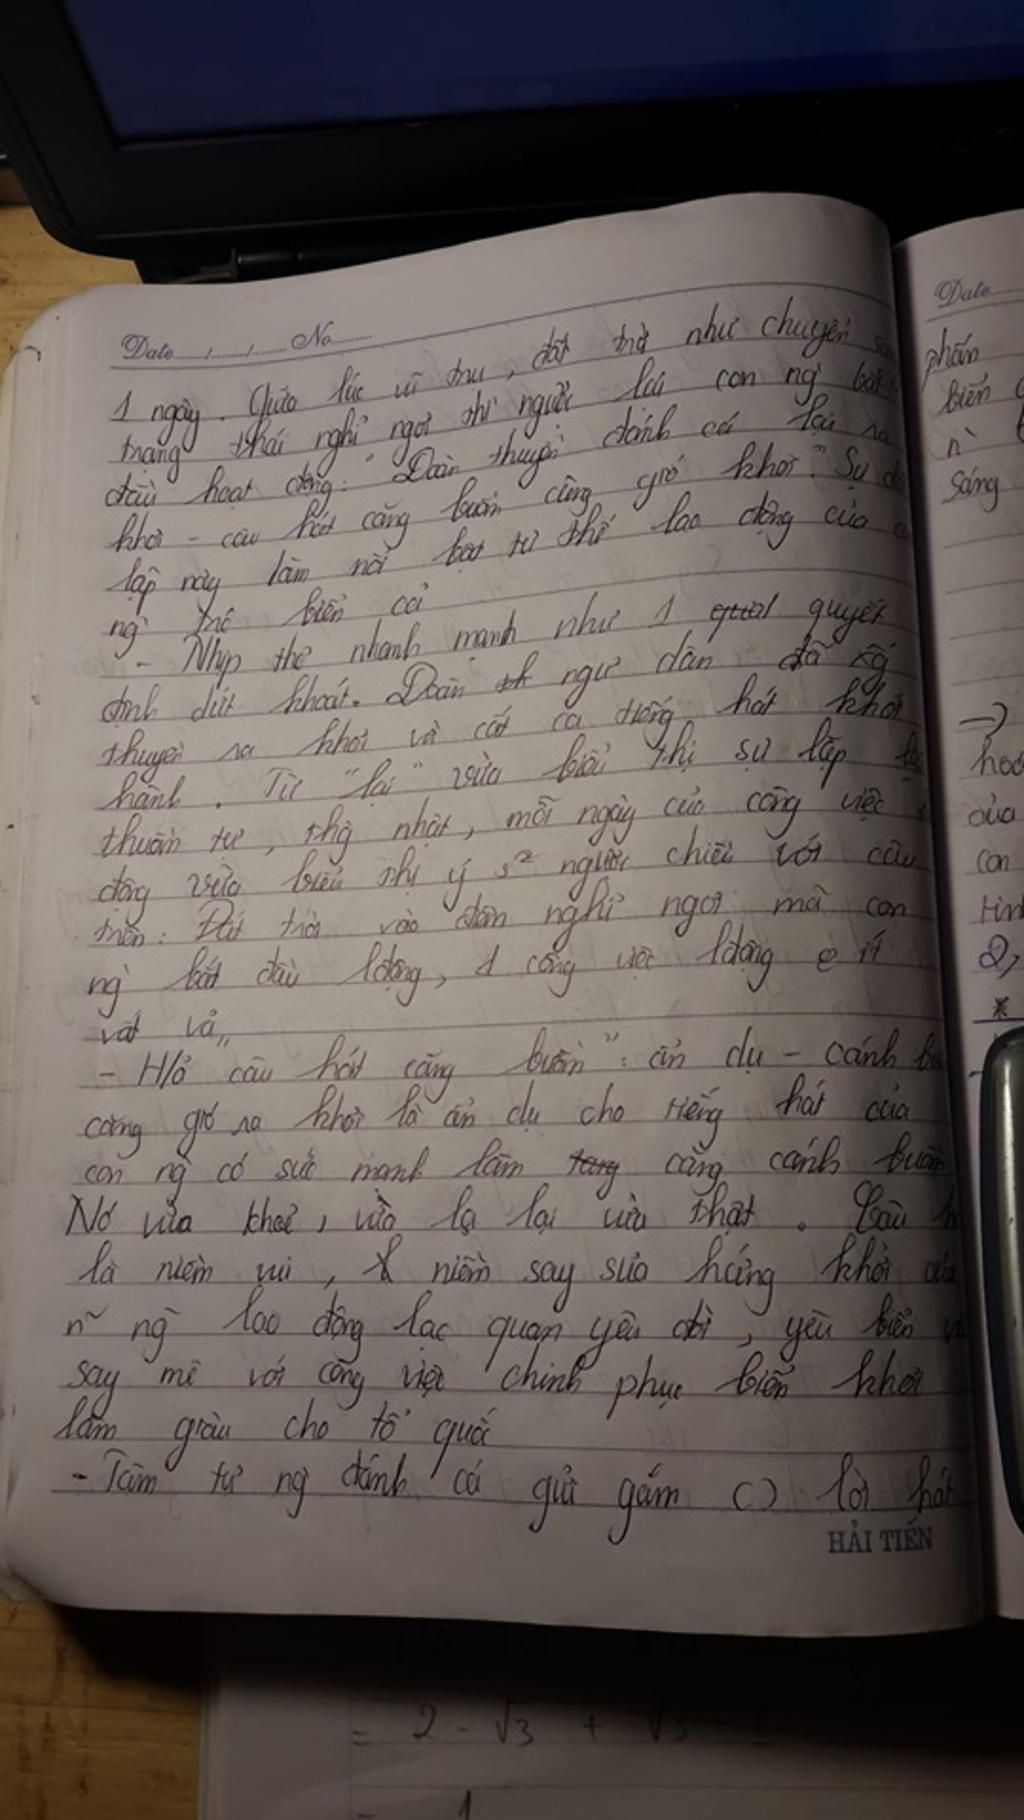 Date No
1 ngày. Giữa lúc vũ trụ, đất trời như chuyển
trạng thái nghỉ ngơi thì người lại con ng` bắt
đầu hoạt động: "Đoàn thuyền đánh cá lại ra
khơi - câu hát căng buồm cùng gió khơi." Sự
lập này làm nổi bật tư thế lao động của
ng` trc biển cả
- Nhịp thơ nhanh mạnh như 1 quyết
định dứt khoát. Đoàn ngư dân đã
thuyền ra khơi và cất cao tiếng hát khởi
hành. Từ "lại" vừa biểu thị sự lặp
thuần tự, thg nhật, mỗi ngày của công việc
động vừa biểu thị ý s² ngược chiều với câu
trên: Đất trời vào đêm nghỉ ngơi mà con
ng` bắt đầu lđộng, 1 công việc lđộng
vất vả
- H/ả câu hát căng buồm": ẩn dụ - cánh
căng gió ra khơi là ẩn dụ cho tiếng hát của
con ng` có sức mạnh làm căng cánh buồm
Nó vừa khoẻ, vừa lạ lại vừa thật. Câu
là niềm vui, niềm say sưa hứng khởi của
n~ ng` lao động lạc quan yêu đời, yêu biển
say mê với công việc chinh phục biển khơi
làm giàu cho tổ quốc
- Tâm tư ng` đánh cá gửi gắm lời hát
HẢI TIẾN
Date
phấn
biển
sáng
→
hoà
của
con
2,
*
= 2 - √3 + √3
= 1